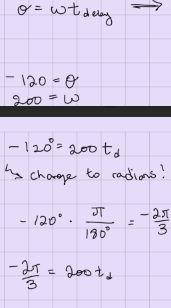 θ = ω t delay ⟹
-120 = θ
200 = ω
-120° = 200 t_d
↳ change to radians!
-120° · π/180° = -2π/3
-2π/3 = 200 t_d